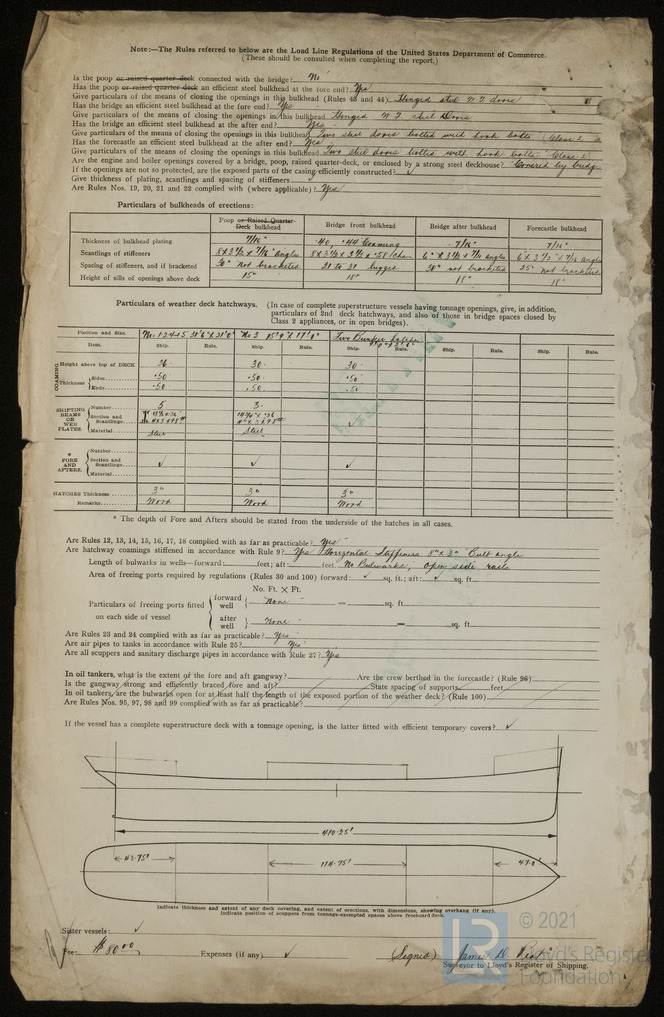 Note:—The Rules referred to below are the Load Line Regulations of the United States Department of Commerce.
(These should be consulted when completing the report.)
Is the poop or raised quarter deck connected with the bridge? No
Has the poop or raised quarter deck an efficient steel bulkhead at the fore end? Yes
Give particulars of the means of closing the openings in this bulkhead (Rules 43 and 44) Hinged steel W.T. doors
Has the bridge an efficient steel bulkhead at the fore end? Yes
Give particulars of the means of closing the openings in this bulkhead Hinged W.T. steel Doors
Has the bridge an efficient steel bulkhead at the after end? Yes
Give particulars of the means of closing the openings in this bulkhead Two steel doors bolted with hook bolts (Class 2
Has the forecastle an efficient steel bulkhead at the after end? Yes
Give particulars of the means of closing the openings in this bulkhead Two steel doors bolted with hook bolts Class 2
Are the engine and boiler openings covered by a bridge, poop, raised quarter-deck, or enclosed by a strong steel deckhouse? Covered by bridge
If the openings are not so protected, are the exposed parts of the casing efficiently constructed? ✓
Give thickness of plating, scantlings and spacing of stiffeners ✓
Are Rules Nos. 19, 20, 21 and 22 complied with (where applicable)? Yes
Particulars of bulkheads of erections:
Poop or Raised Quarter-Deck bulkhead Bridge front bulkhead Bridge after bulkhead Forecastle bulkhead
Thickness of bulkhead plating 7/16" .40, .44 Coaming 7/16" 7/16"
Scantlings of stiffeners 8 x 3½ x 7/16" angles 8 x 3½ x 3½ x .58 Chan 6" x 3½ x 7/16 angles 6" x 3½" x 7/16 angles
Spacing of stiffeners, and if bracketed 30" Not bracketed lugged 30" not bracketed 25" not bracketed
Height of sills of openings above deck 15" 18" 18" 18"
Particulars of weather deck hatchways. (In case of complete superstructure vessels having tonnage openings, give, in addition,
particulars of 2nd deck hatchways, and also of those in bridge spaces closed by
Class 2 appliances, or in open bridges).
Position and Size. No. 1·2·4·5 No 3 Two Bunker
Item. Ship. Rule. Ship. Rule. Ship. Rule. Ship. Rule. Ship. Rule.
COAMING Height above top of DECK 36 30 30
Thickness Sides .50 .50 .50
Ends .50 .50 .50
SHIFTING BEAMS OR WEB PLATES. Number 5 3
Section and Scantlings ✓
Material Steel Steel
* FORE AND AFTERS. Number
Section and Scantlings ✓ ✓ ✓
Material
HATCHES Thickness 3" 3" 3"
Remarks Wood Wood Wood
* The depth of Fore and Afters should be stated from the underside of the hatches in all cases.
Are Rules 12, 13, 14, 15, 16, 17, 18 complied with as far as practicable? Yes
Are hatchway coamings stiffened in accordance with Rule 9? Yes Horizontal Stiffeners 8" x 3" Bulb angle
Length of bulwarks in wells—forward: feet; aft: feet. No Bulwarks, open side rails
Area of freeing ports required by regulations (Rules 30 and 100) forward: ✓ sq. ft.; aft: ✓ sq. ft.
No. Ft. × Ft.
Particulars of freeing ports fitted on each side of vessel
forward well None = sq. ft.
after well None = sq. ft.
Are Rules 23 and 24 complied with as far as practicable? Yes
Are air pipes to tanks in accordance with Rule 25? Yes
Are all scuppers and sanitary discharge pipes in accordance with Rule 27? Yes
In oil tankers, what is the extent of the fore and aft gangway? Are the crew berthed in the forecastle? (Rule 96)
Is the gangway strong and efficiently braced fore and aft? State spacing of supports feet
In oil tankers, are the bulwarks open for at least half the length of the exposed portion of the weather deck? (Rule 100)
Are Rules Nos. 95, 97, 98 and 99 complied with as far as practicable?
If the vessel has a complete superstructure deck with a tonnage opening, is the latter fitted with efficient temporary covers? ✓
410·25'
43·75' 114·75' 47·0'
Indicate thickness and extent of any deck covering, and extent of erections, with dimensions, showing overhang (if any).
Indicate position of scuppers from tonnage-exempted spaces above freeboard deck.
Sister vessels: ✓
Fee: $80.00 Expenses (if any) ✓ (Signed) James D.
Surveyor to Lloyd's Register of Shipping.
LR © 2021
Lloyd's Register
Foundation